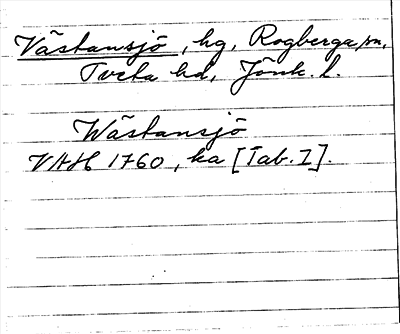 Västansjö, hg, Rogberga sn,
Tveta hd, Jönk. l.
Wästansjö
VAH 1760, ka [Tab. I].